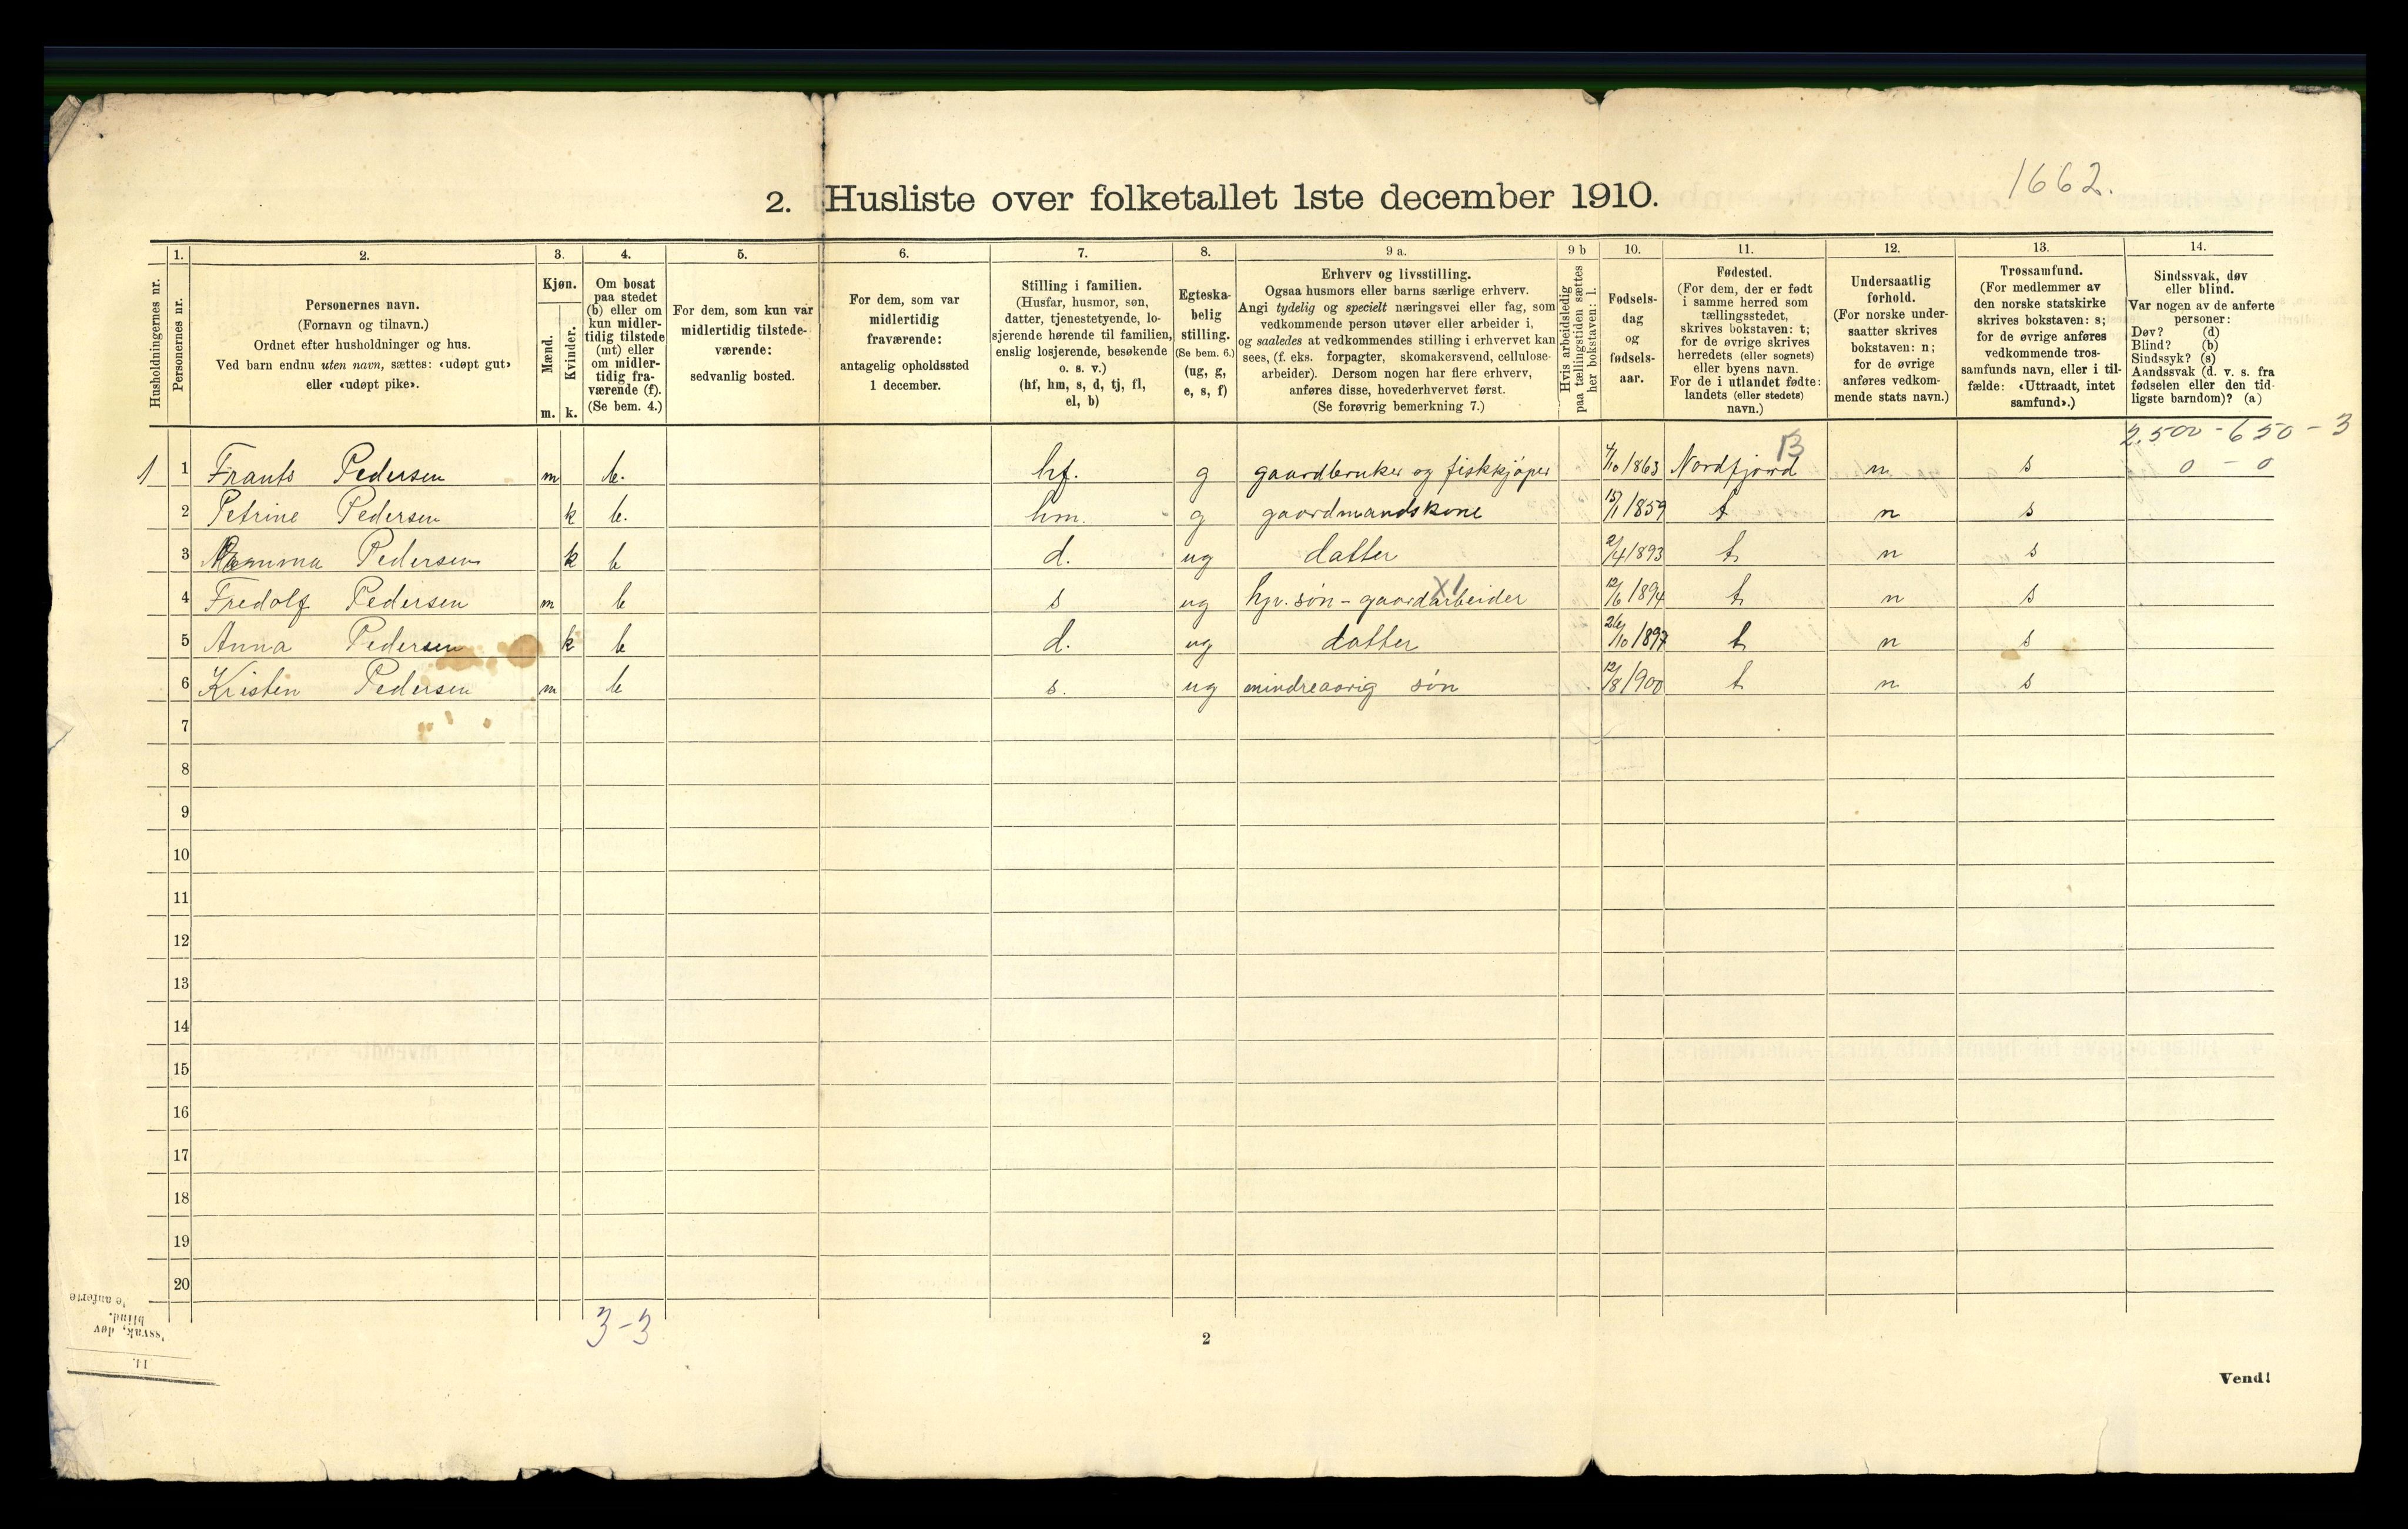 1662.
2. Husliste over folketallet 1ste december 1910.
Husholdningernes nr.
1.
Personernes nr.
2.
Personernes navn.
(Fornavn og tilnavn.)
Ordnet efter husholdninger og hus.
Ved barn endnu uten navn, sættes: «udøpt gut»
eller «udøpt pike».
3.
Kjøn.
Mænd.
Kvinder.
m. k.
4.
Om bosat
paa stedet
(b) eller om
kun midler-
tidig tilstede
(mt) eller
om midler-
tidig fra-
værende (f).
(Se bem. 4.)
5.
For dem, som kun var
midlertidig tilstede-
værende:
sedvanlig bosted.
6.
For dem, som var
midlertidig
fraværende:
antagelig opholdssted
1 december.
7.
Stilling i familien.
(Husfar, husmor, søn,
datter, tjenestetyende, lo-
sjerende hørende til familien,
enslig losjerende, besøkende
o. s. v.)
(hf, hm, s, d, tj, fl,
el, b)
8.
Egteska-
belig
stilling.
(Se bem. 6.)
(ug, g,
e, s, f)
9 a.
Erhverv og livsstilling.
Ogsaa husmors eller barns særlige erhverv.
Angi tydelig og specielt næringsvei eller fag, som
vedkommende person utøver eller arbeider i,
og saaledes at vedkommendes stilling i erhvervet kan
sees, (f. eks. forpagter, skomakersvend, cellulose-
arbeider). Dersom nogen har flere erhverv,
anføres disse, hovederhvervet først.
(Se forøvrig bemerkning 7.)
9 b
Hvis arbeidsledig
paa tællingstiden sættes
her bokstaven: l.
10.
Fødsels-
dag
og
fødsels-
aar.
11.
Fødested.
(For dem, der er født
i samme herred som
tællingsstedet,
skrives bokstaven: t;
for de øvrige skrives
herredets (eller sognets)
eller byens navn.
For de i utlandet fødte:
landets (eller stedets)
navn.)
12.
Undersaatlig
forhold.
(For norske under-
saatter skrives
bokstaven: n;
for de øvrige
anføres vedkom-
mende stats navn.)
13.
Trossamfund.
(For medlemmer av
den norske statskirke
skrives bokstaven: s;
for de øvrige anføres
vedkommende tros-
samfunds navn, eller i til-
fælde: «Uttraadt, intet
samfund».)
14.
Sindssvak, døv
eller blind.
Var nogen av de anførte
personer:
Døv? (d)
Blind? (b)
Sindssyk? (s)
Aandssvak (d. v. s. fra
fødselen eller den tid-
ligste barndom)? (a)
2.500 - 650 - 3
13
1 1 Frants Pedersen m b. hf. g gaardbruker og fiskkjøper 4/10 1863 Nordfjord n s 0 - 0
2 Petrine Pedersen k b. hm. g gaardmandskone 15/1 1859 t n s
3 Pedersen k b d. ug datter 2/4 1893 t n s
X1
4 Fredolf Pedersen m b s ug hjv. søn - gaardarbeider 12/6 1894 t n s
5 Anna Pedersen k b d. ug datter 26/10 1897 t n s
6 Kristen Pedersen m b s. ug mindreaarig søn 12/8 1900 t n s
7
8
9
10
11
12
13
14
15
16
17
18
19
20
3-3
2
Vend!
14.
ssvak, døv
blind.
e anførte